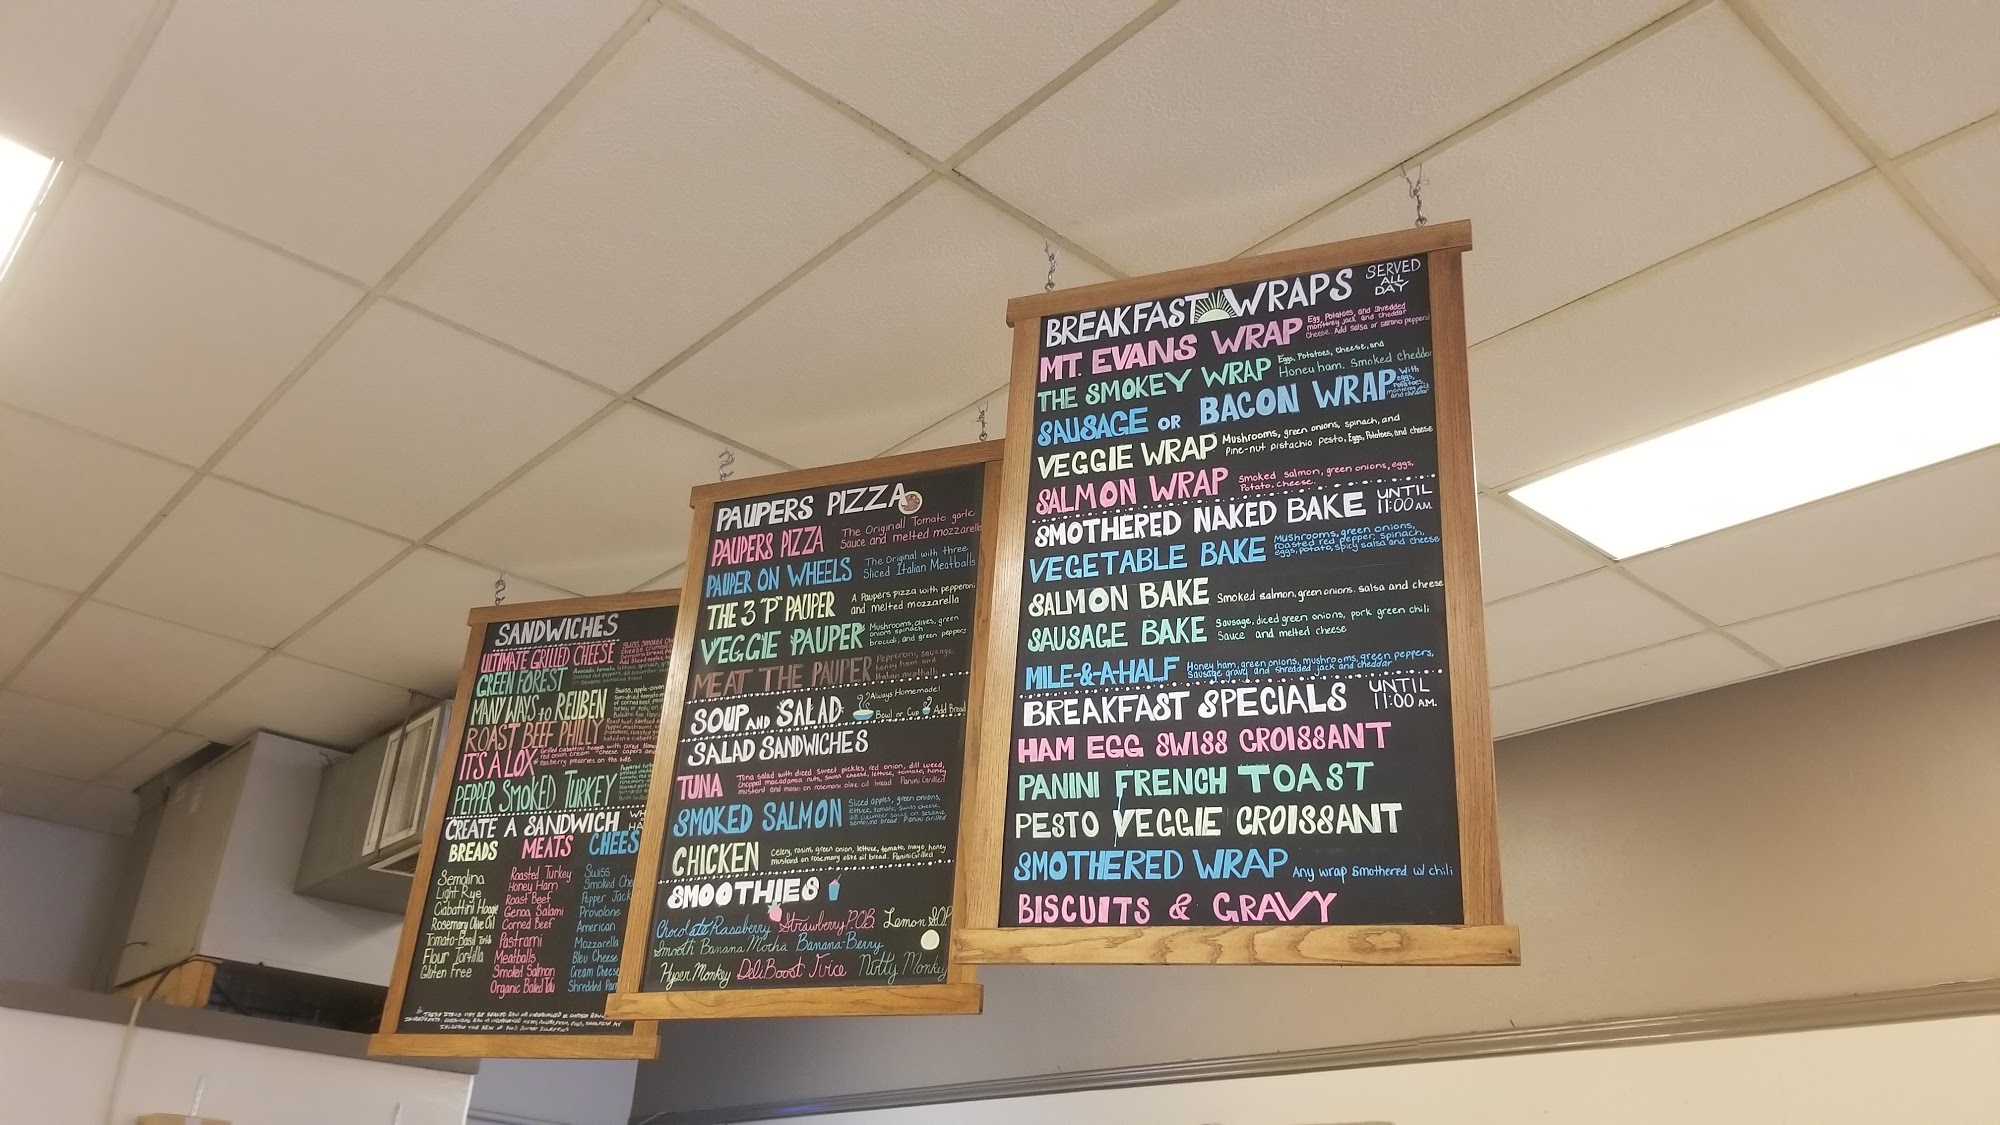 SANDWICHES
ULTIMATE GRILLED CHEESE
GREEN FOREST
MANY WAYS to REUBEN
ROAST BEEF PHILLY
IT'S A LOX
PEPPER SMOKED TURKEY
CREATE A SANDWICH
BREADS MEATS CHEES
Semolina
Light Rye
Ciabattini Hoagie
Rosemary Olive Oil
Tomato-Basil
Flour Tortilla
Gluten Free
Roasted Turkey
Honey Ham
Roast Beef
Genoa Salami
Corned Beef
Pastrami
Meatballs
Smoked Salmon
Organic Baked Tofu
Swiss
Smoked Che
Pepper Jack
Provolone
American
Mozzarella
Bleu Cheese
Cream Cheese
Shredded Parm
PAUPERS PIZZA
PAUPERS PIZZA The Originall Tomato garlic
Sauce and melted mozzarella
PAUPER ON WHEELS The Original with three
Sliced Italian Meatballs
THE 3 "P" PAUPER A Paupers pizza with pepperoni
and melted mozzarella
VEGGIE PAUPER Mushrooms, olives, green
onions spinach,
broccoli, and green peppers
MEAT THE PAUPER Pepperoni, Sausage,
honey ham and
Italian meatballs
SOUP AND SALAD Always Homemade!
Bowl or Cup Add Bread
SALAD SANDWICHES
TUNA Tuna salad with diced sweet pickles, red onion, dill weed,
chopped macadamia nuts, swiss cheese, lettuce, tomato, honey
mustard and mayo on rosemary olive oil bread. Panini Grilled
SMOKED SALMON Sliced apples, green onions,
lettuce, tomato, swiss cheese,
dill cucumber sauce on sesame
semolina bread. Panini Grilled
CHICKEN Celery, raisin, green onion, lettuce, tomato, mayo, honey
mustard on rosemary olive oil bread. Panini Grilled
SMOOTHIES
Chocolate Raspberry Strawberry P.O.B. Lemon S.O.P.
Smooth Banana Mocha Banana-Berry
Hyper Monkey Deli Boost Juice Nutty Monkey
BREAKFAST WRAPS SERVED
ALL
DAY
MT. EVANS WRAP Egg, Potatoes, and Shredded
monterey jack and cheddar
Cheese. Add salsa or serrano peppers!
THE SMOKEY WRAP Eggs, Potatoes, Cheese, and
Honey ham. Smoked cheddar
SAUSAGE OR BACON WRAP With
eggs,
Potatoes,
monterey jack
and cheddar
VEGGIE WRAP Mushrooms, green onions, spinach, and
Pine-nut pistachio pesto, Eggs, Potatoes, and cheese
SALMON WRAP Smoked salmon, green onions, eggs,
Potato, cheese.
SMOTHERED NAKED BAKE UNTIL
11:00 AM.
VEGETABLE BAKE Mushrooms, green onions,
roasted red pepper, spinach,
eggs, potato, spicy salsa and cheese
SALMON BAKE Smoked salmon, green onions. salsa and cheese
SAUSAGE BAKE Sausage, diced green onions, pork green chili
Sauce and melted cheese
MILE-&-A-HALF Honey ham, green onions, mushrooms, green peppers,
Sausage gravy and shredded jack and cheddar
BREAKFAST SPECIALS UNTIL
11:00 AM.
HAM EGG SWISS CROISSANT
PANINI FRENCH TOAST
PESTO VEGGIE CROISSANT
SMOTHERED WRAP Any wrap smothered w/ chili
BISCUITS & GRAVY